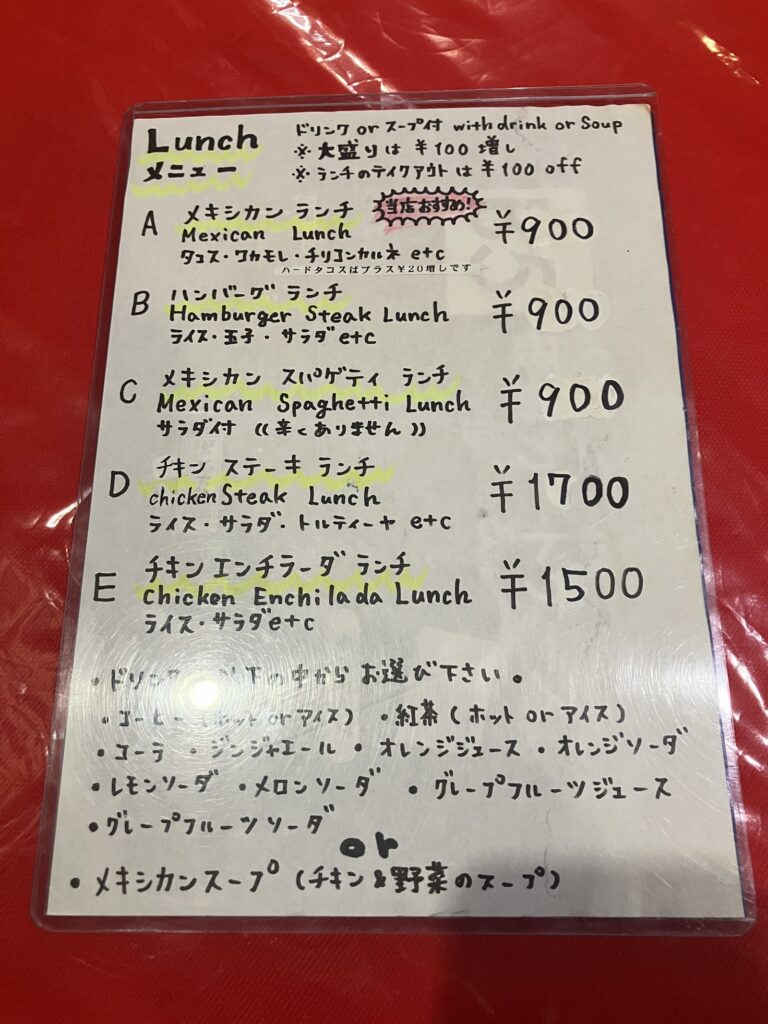 Lunch
メニュー
ドリンク or スープ付 with drink or Soup
※ 大盛りは ¥100 増し
※ ランチのテイクアウト は ¥100 off
A メキシカン ランチ 当店おすすめ! ¥900
Mexican Lunch
タコス・ワカモレ・チリコンカルネ etc
ハードタコスはプラス¥20増しです
B ハンバーグ ランチ ¥900
Hamburger Steak Lunch
ライス・玉子・サラダ etc
C メキシカン スパゲティ ランチ ¥900
Mexican Spaghetti Lunch
サラダ付 ((辛くありません))
D チキン ステーキ ランチ ¥1700
chicken Steak Lunch
ライス・サラダ・トルティーヤ etc
E チキン エンチラーダ ランチ ¥1500
Chicken Enchilada Lunch
ライス・サラダ etc
・ドリンク 以下の中から お選び下さい。
・コーヒー (ホット or アイス) ・紅茶 (ホット or アイス)
・コーラ ・ジンジャエール ・オレンジジュース ・オレンジソーダ
・レモンソーダ ・メロンソーダ ・グレープフルーツジュース
・グレープフルーツソーダ
or
・メキシカンスープ (チキン & 野菜のスープ)